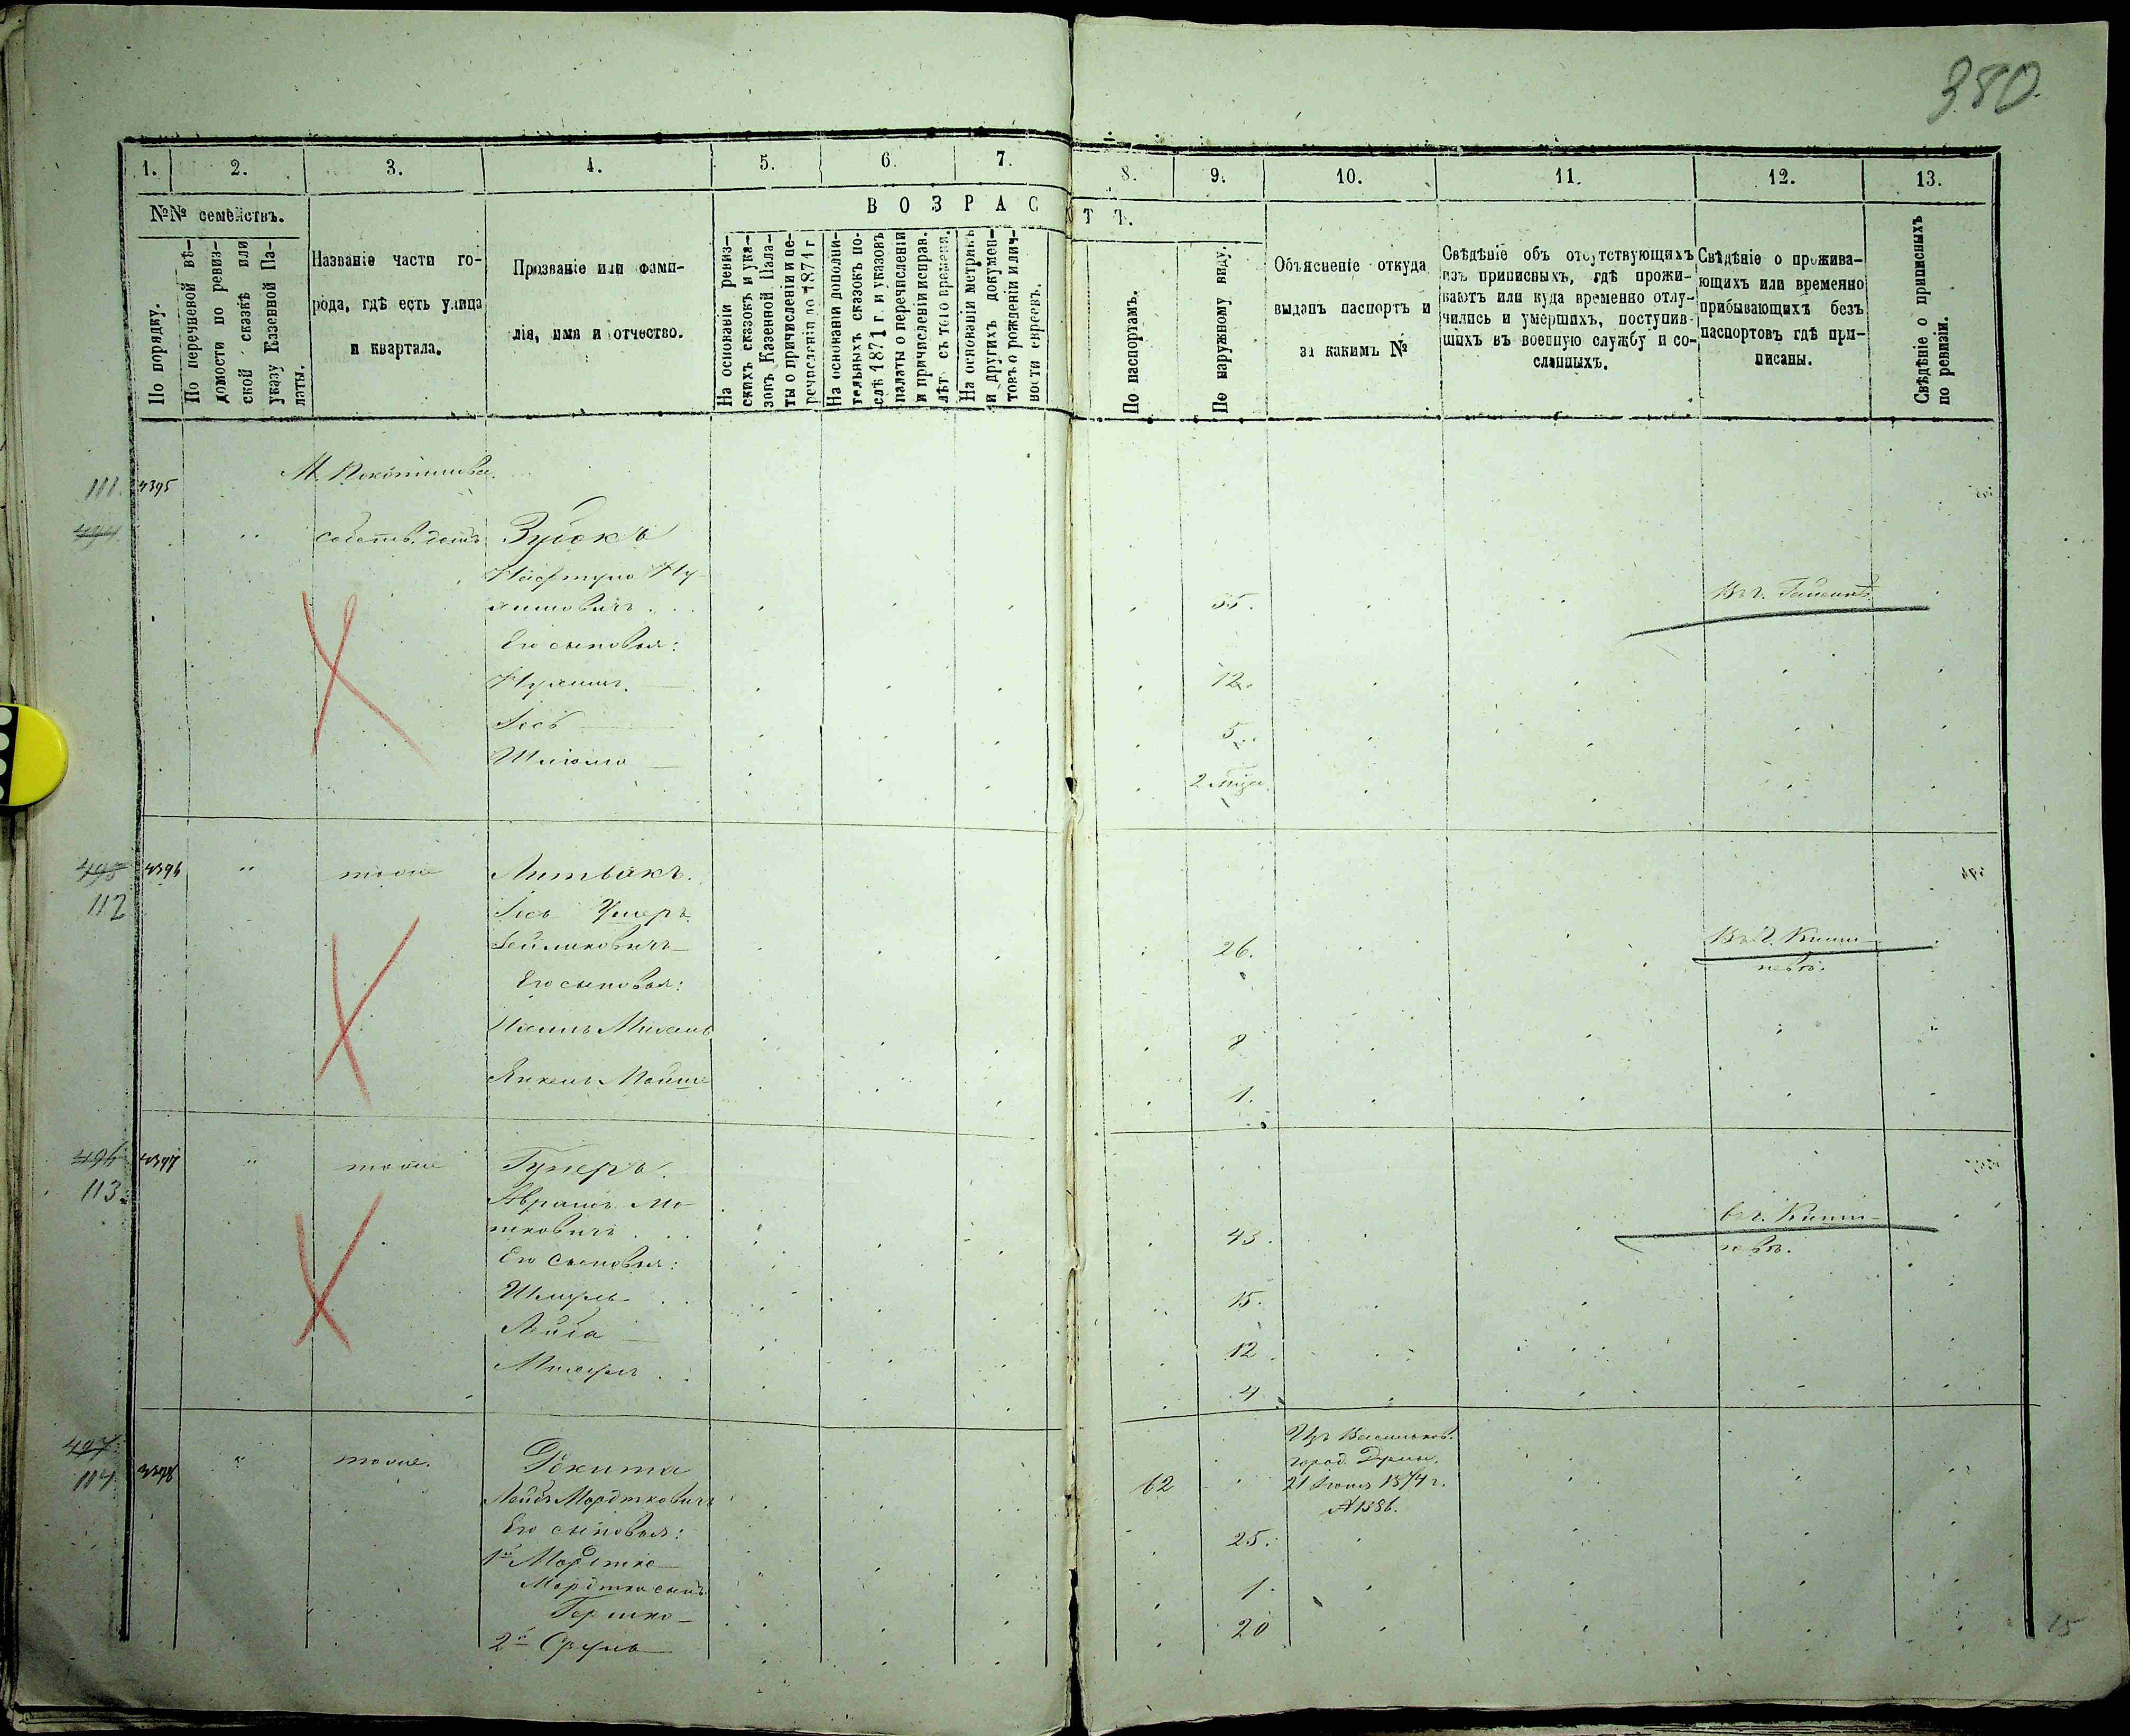 380.
1. 2. 3. 4. 5. 6. 7. 8. 9. 10. 11. 12. 13.
№№ семействъ.
По порядку.
По перечневой вѣ-
домости по ревиз-
ской сказкѣ или
указу Казенной Па-
латы.
Названіе части го-
рода, гдѣ есть улица
и квартала.
Прозваніе или фами-
лія, имя и отчество.
ВОЗРАСТЪ.
На основаніи ревиз-
скихъ сказокъ и ука-
зовъ Казенной Пала-
ты о причисленіи и пе-
речисленіи до 1871 г
На основаніи дополни-
тельныхъ сказокъ по-
слѣ 1871 г. и указовъ
палаты о перечисленіи
и причисленіи исправ.
лѣт съ того времени.
На основаніи метрикъ
и другихъ докумен-
товъ о рожденіи и лич-
ности евреевъ.
По паспортамъ.
По наружному виду.
Объясненіе откуда
выданъ паспортъ и
за какимъ №
Свѣдѣніе объ отсутствующихъ
изъ приписныхъ, гдѣ прожи-
ваютъ или куда временно отлу-
чились и умершихъ, поступив-
шихъ въ военную службу и со-
сланныхъ.
Свѣдѣніе о прожива-
ющихъ или временно
прибывающихъ безъ
паспортовъ гдѣ при-
писаны.
Свѣдѣніе о приписныхъ
по ревизіи.
111. 4395 М. Покотилова
собств. домъ Зубокъ
Нафтула Ну-
химовичъ 35.
Его сыновья:
Нухимъ 12.
Іосъ 5.
Шліома 2 мѣся.
495 4396 тоже Литвакъ.
112 Іосъ Ушеръ
Зейликовичъ 26. Въ г. Киши-
невѣ.
Его сыновья:
8
Янкель Мойше 1.
4397 тоже
113. Аврамъ Мо-
шковичъ 43. въ г. Киши-
невѣ.
Его сыновья:
Шмуль 15.
Лейба 12
4
497 Изъ Васильков.
114 4398 тоже. Рокита город. Думы.
Лейбъ Мордтковичъ 62 21 Іюня 1874 г.
№1386.
Его сыновья:
1й Мордтко 25.
Мордтки сынъ
Гершко 1
2й Сруль 20
15